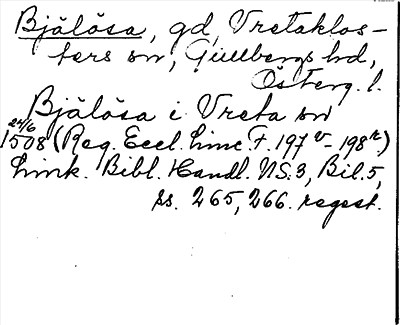 Bjälösa, gd, Vretaklos-
ters sn, Gullbergs hd,
Österg. l.
Bjälösa i Vreta sn
24/6
1508 (Reg. Eccl. Linc. F. 197 v - 198 r.)
Link. Bibl. Handl. NS.3, Bil.5,
ss. 265, 266. regest.